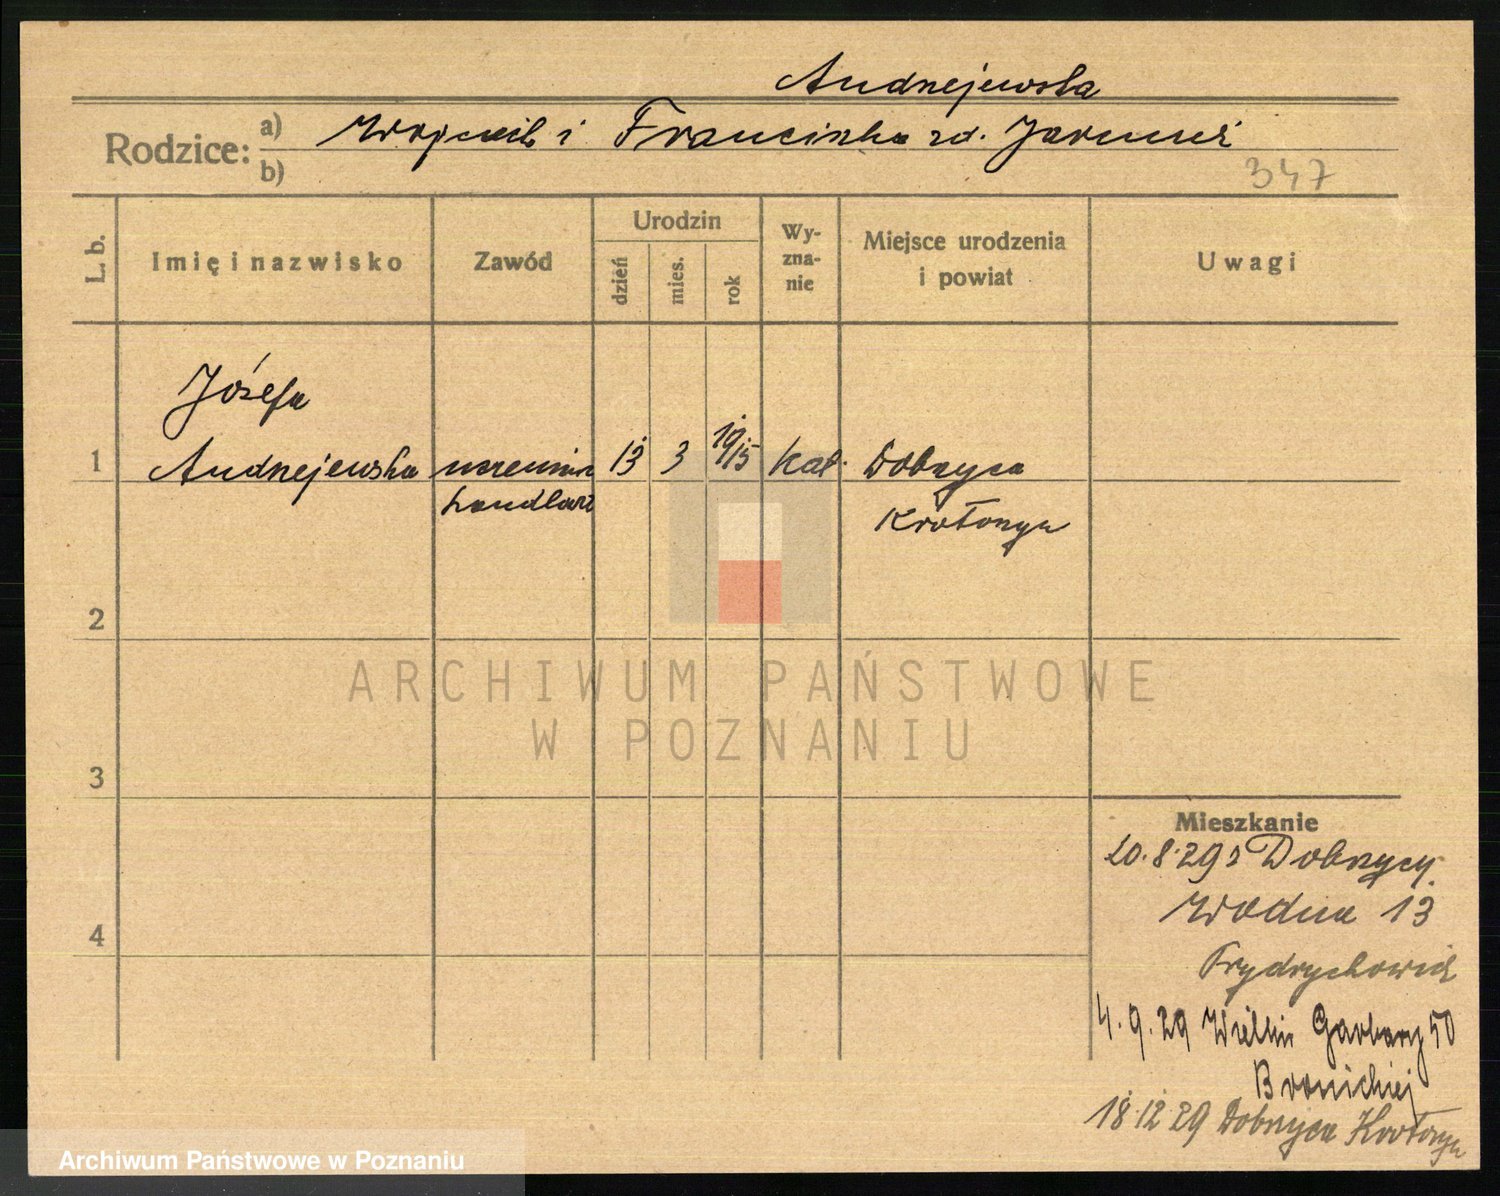 Andrzejewska
Rodzice: a) Wojciech i Franciszka zd.
b)
347
L. b.
Imię i nazwisko
Zawód
Urodzin
dzień
mies.
rok
Wy-
zna-
nie
Miejsce urodzenia
i powiat
Uwagi
Józefa
1 Andrzejewska uczennica 13 3 19/15 kat. Dobrzyca
handlow
Krotoszyn
2
3
4
ARCHIWUM PAŃSTWOWE
W POZNANIU
Mieszkanie
20.8.29 z Dobrzycy
Wodna 13
Frydrychowicz
4.9.29 Wielkie Garbary 50
Bronickiej
18.12.29 Dobrzyca Krotoszyn
Archiwum Państwowe w Poznaniu